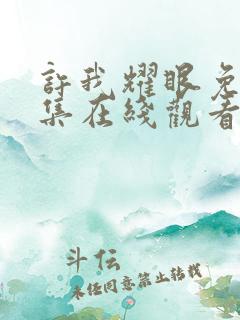 許我耀眼免
集在綫觀看
斗伝
未经同意禁止转载